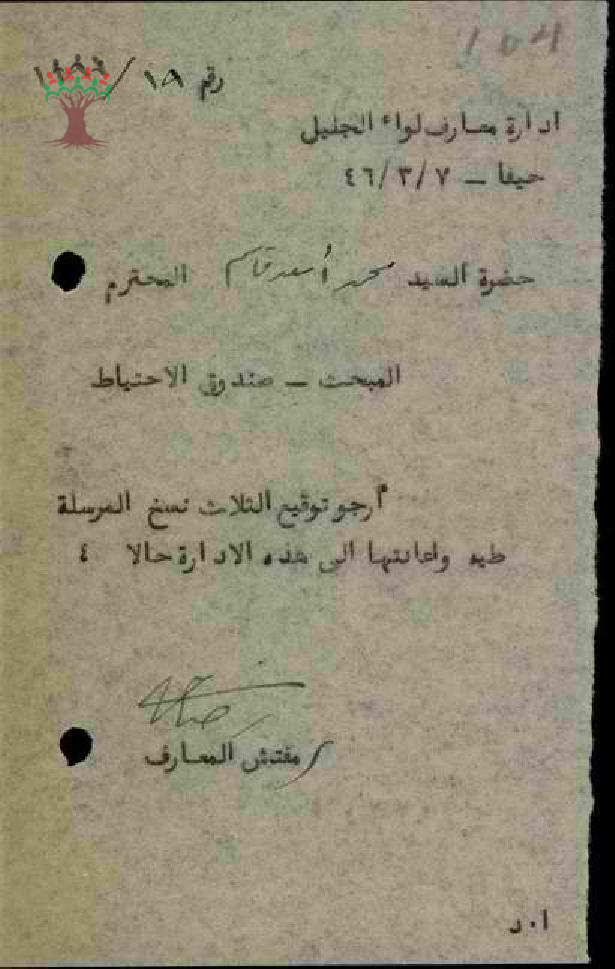 104
رقم ١٨/
ادارة معارف لواء الجليل
حيفا – ٤٦/٣/٧
حضرة السيد محمد أسعد قاسم المحترم
المبحث – صندوق الاحتياط
أرجو توقيع الثلاث نسخ المرسلة
طيه واعادتها الى هذه الادارة حالا ٤
مفتش المعارف
ا٠د